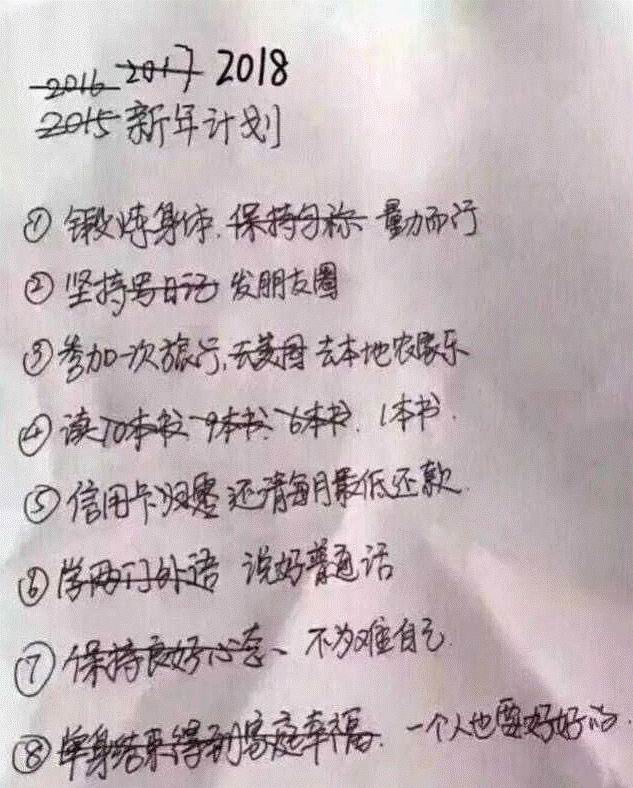 2016 2017 2018
2015 新年计划
① 锻炼身体. 保持匀称 量力而行
② 坚持写日记 发朋友圈
③ 参加一次旅行, 去美国 去本地农家乐
④ 读10本书 9本书. 6本书. 1本书.
⑤ 信用卡归零 还清每月最低还款.
⑥ 学两门外语 说好普通话
⑦ 保持良好心态、不为难自己.
⑧ 单身结束得到家庭幸福. 一个人也要好好的.